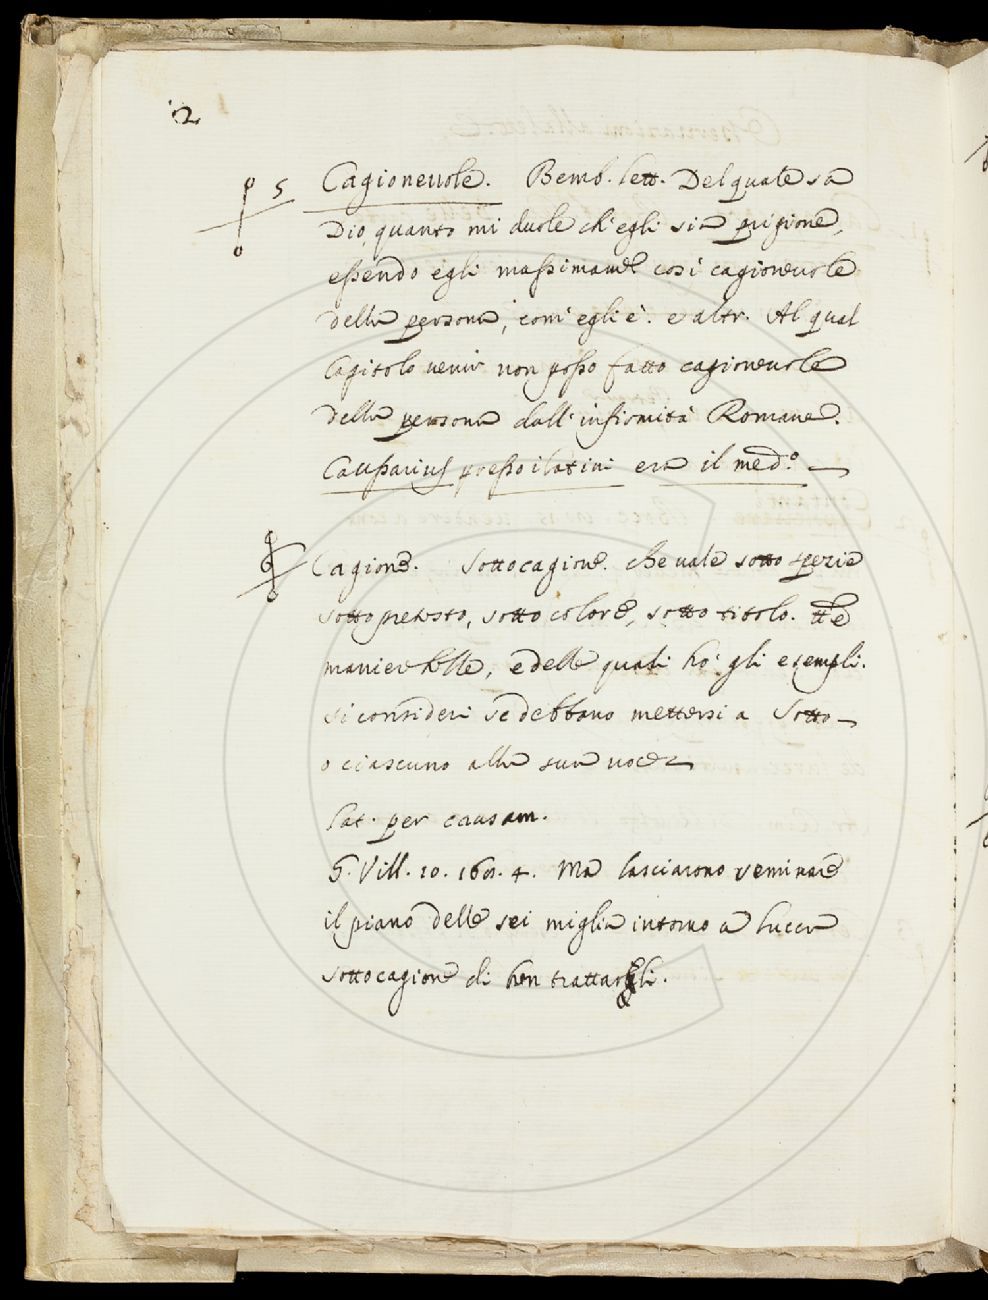 2
5 Cagioneuole. Bemb. lett. Del quale sà
Dio quanto mi duole ch'egli sia prigione,
eßendo egli maßimame così cagioneuole
della persona, com'egli è. e altr. Al qual
Capitolo uenir non poßo fatto cagioneuole
della persona dall'infirmità Romane.
Caußarius preßo i latini era il med.o
6 Cagione. Sotto cagione. che uale sotto spezie
sotto pretesto, sotto colore, sotto titolo. tte
manier belle, e delle quali hò gli esempli.
si consideri se debbano mettersi a Sotto
o ciascuno alla sua uoce
Lat. per causam.
G. Vill. 10. 160. 4. Ma lasciarono seminare
il piano delle sei miglia intorno a Lucca
sotto cagione di ben trattargli.